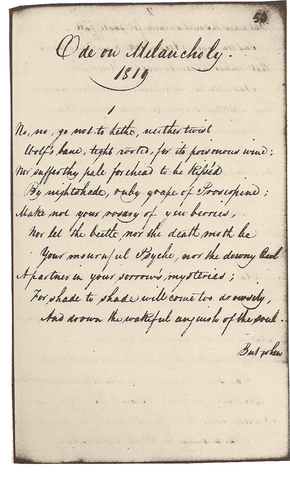 50
Ode on Melancholy.
1819
1
No, no, go not to Lethe, neither twist
Wolf's bane, tight rooted, for its poisonous wine;
Nor suffer thy pale forehead to be kiss'd
By nightshade, ruby grape of Proserpine;
Make not your rosary of yew berries,
Nor let the beetle nor the death moth be
Your mournful Psyche, nor the downy owl
A partner in your sorrow's mysteries;
For shade to shade will come too drowsily,
And drown the wakeful anguish of the soul.
But when